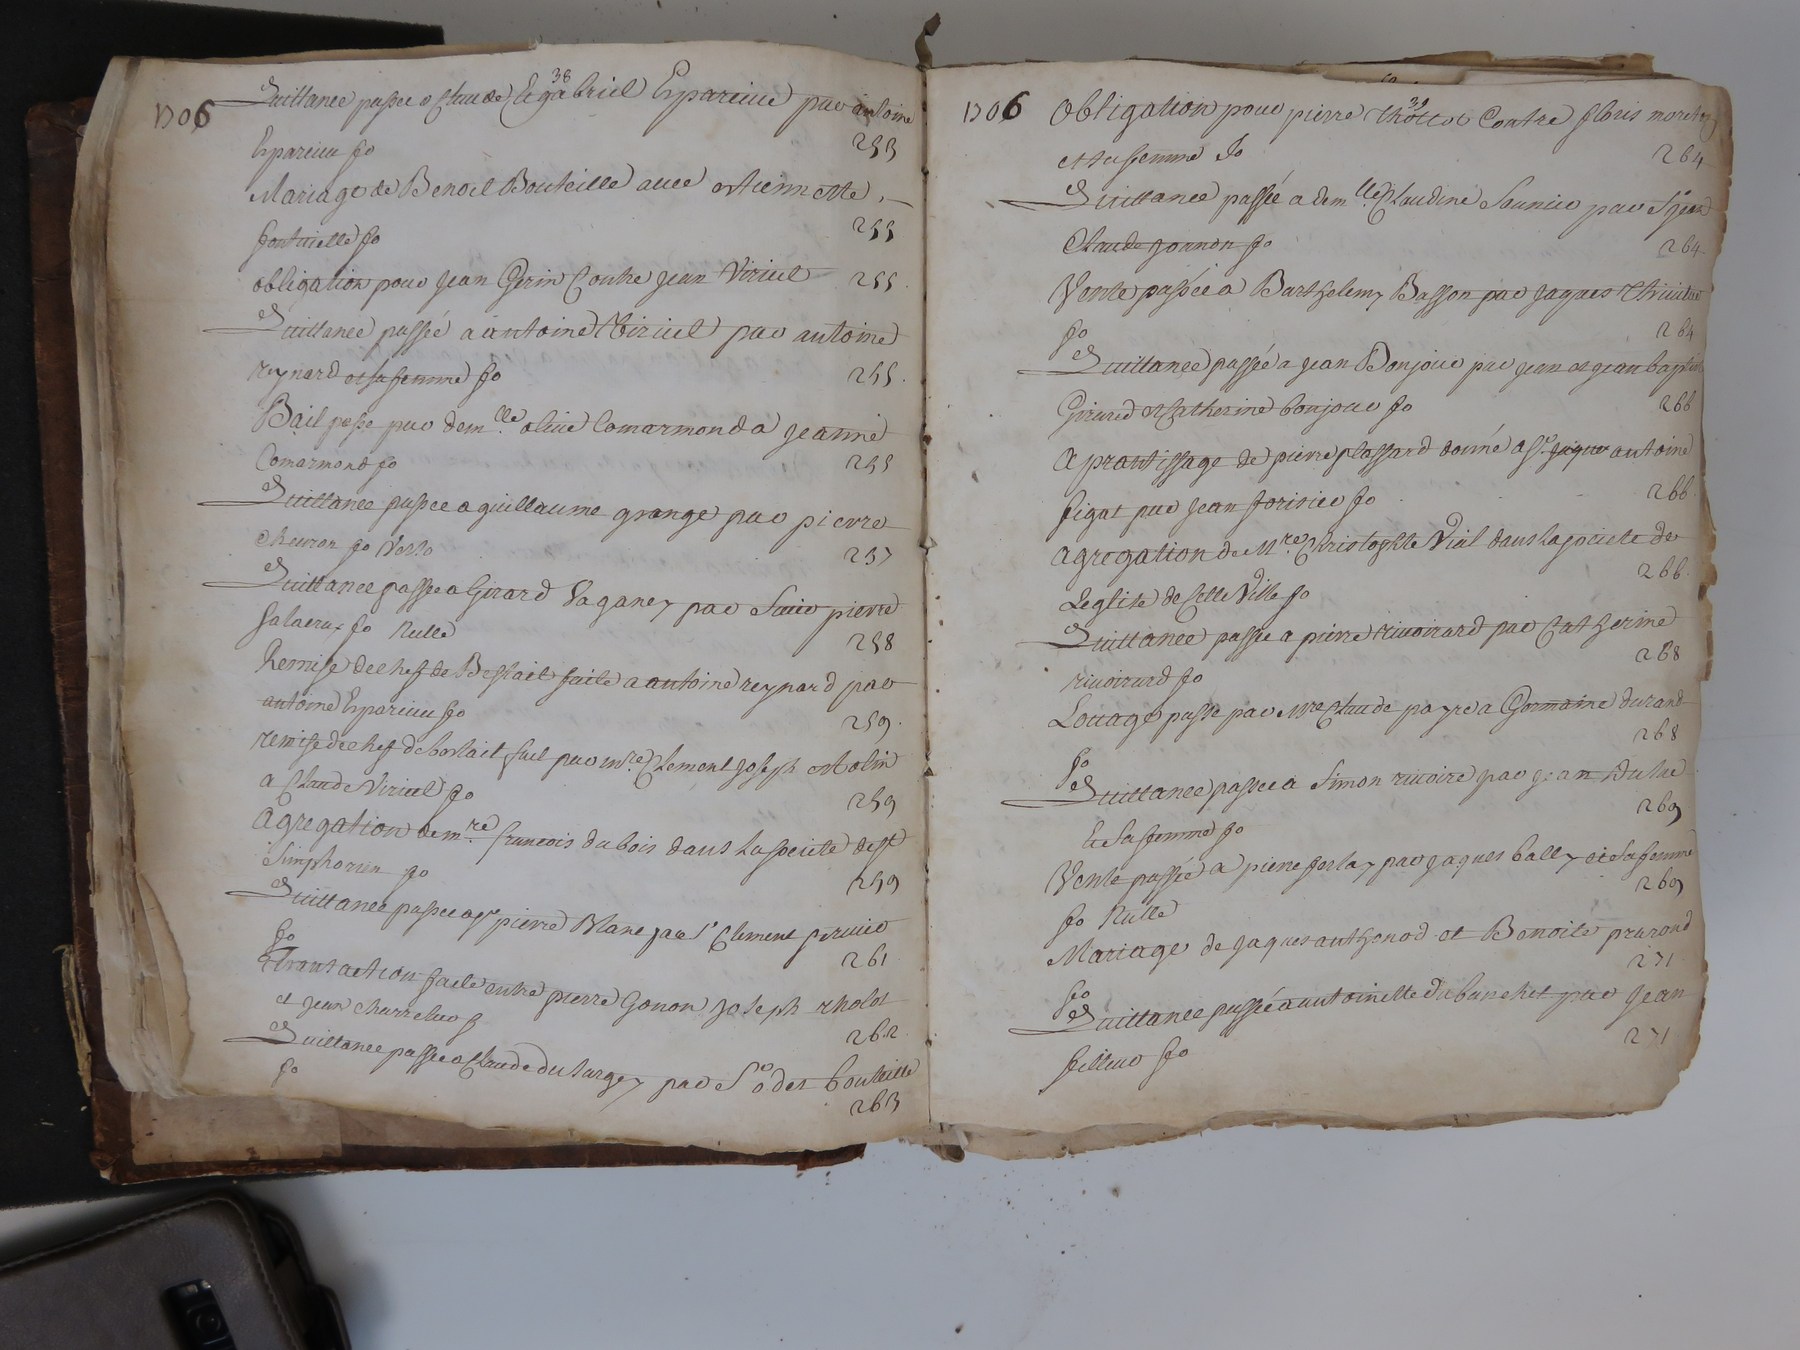 38
1706
Quittance passée a Claude Et gabriel Esparciue par antoine
Esparciue fo 253
Mariage de Benoit Bouteille auec estiennette
fontuielle fo 255
obligation pour jean Gerin Contre jean Viricel 255
Quittance passée a antoine Viricel par antoine
reynard et sa femme fo 255
Bail passe par dem.lle oliue Comarmond a jeanne
Comarmond fo 255
Quittance passée a guillaume grange par pierre
cheuron fo Verso 257
Quittance passée a Girard Vaganey par pierre
fo Nulle 258
Remise de chef de Bestail faite a antoine reynard par
antoine Esparciue fo 259
remise de chef de bestail fait par mre Clement Joseph
a Claude Viricel fo 259
Agregation de mre francois dubois dans La societé de St
Simphorien fo 259
Quittance passée a Sr pierre Blanc par Sr Clement
fo 261
transaction faite entre pierre Gonon Joseph
et jean 262
Quittance passée a Claude par bouteille
fo 263
39
1706
Obligation pour pierre Contre floris
et sa femme fo 264
Quittance passée a dem.lle Claudine Saunier par Sr jean
Claude fo 264
Vente passée a Barthelemy Basson par jaques
fo 264
Quittance passée a jean Bonjour par jean et jean baptiste
Girard et Catherine bonjour fo 266
Aprantissage de pierre plassard donné a Sr antoine
figat par jean forisier fo 266
Agregation de Mre Christophle Vial dans La societe de
Leglise de Cette Ville fo 266
Quittance passée a pierre riuoirard par Catherine
riuoirard fo 268
Louage passe par Mre Claude payre a Germaine durand
fo 268
Quittance passée a Simon riuoire par jean
Et Sa femme fo 269
Vente passée a pierre par jaques bally et Sa femme
fo Nulle 269
Mariage de jaques et Benoite
fo 271
Quittance passée a antoinette dubanchet par jean
fo 271